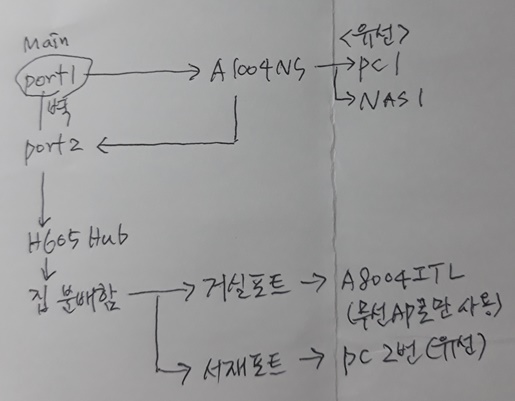 Main
<유선>
port1 → A1004NS → PC1
벽
→ NAS1
port2
H605 Hub
집 분배함 → 거실포트 → A8004ITL
(무선AP몯만 사용)
→ 서재포트 → PC 2번 (유선)